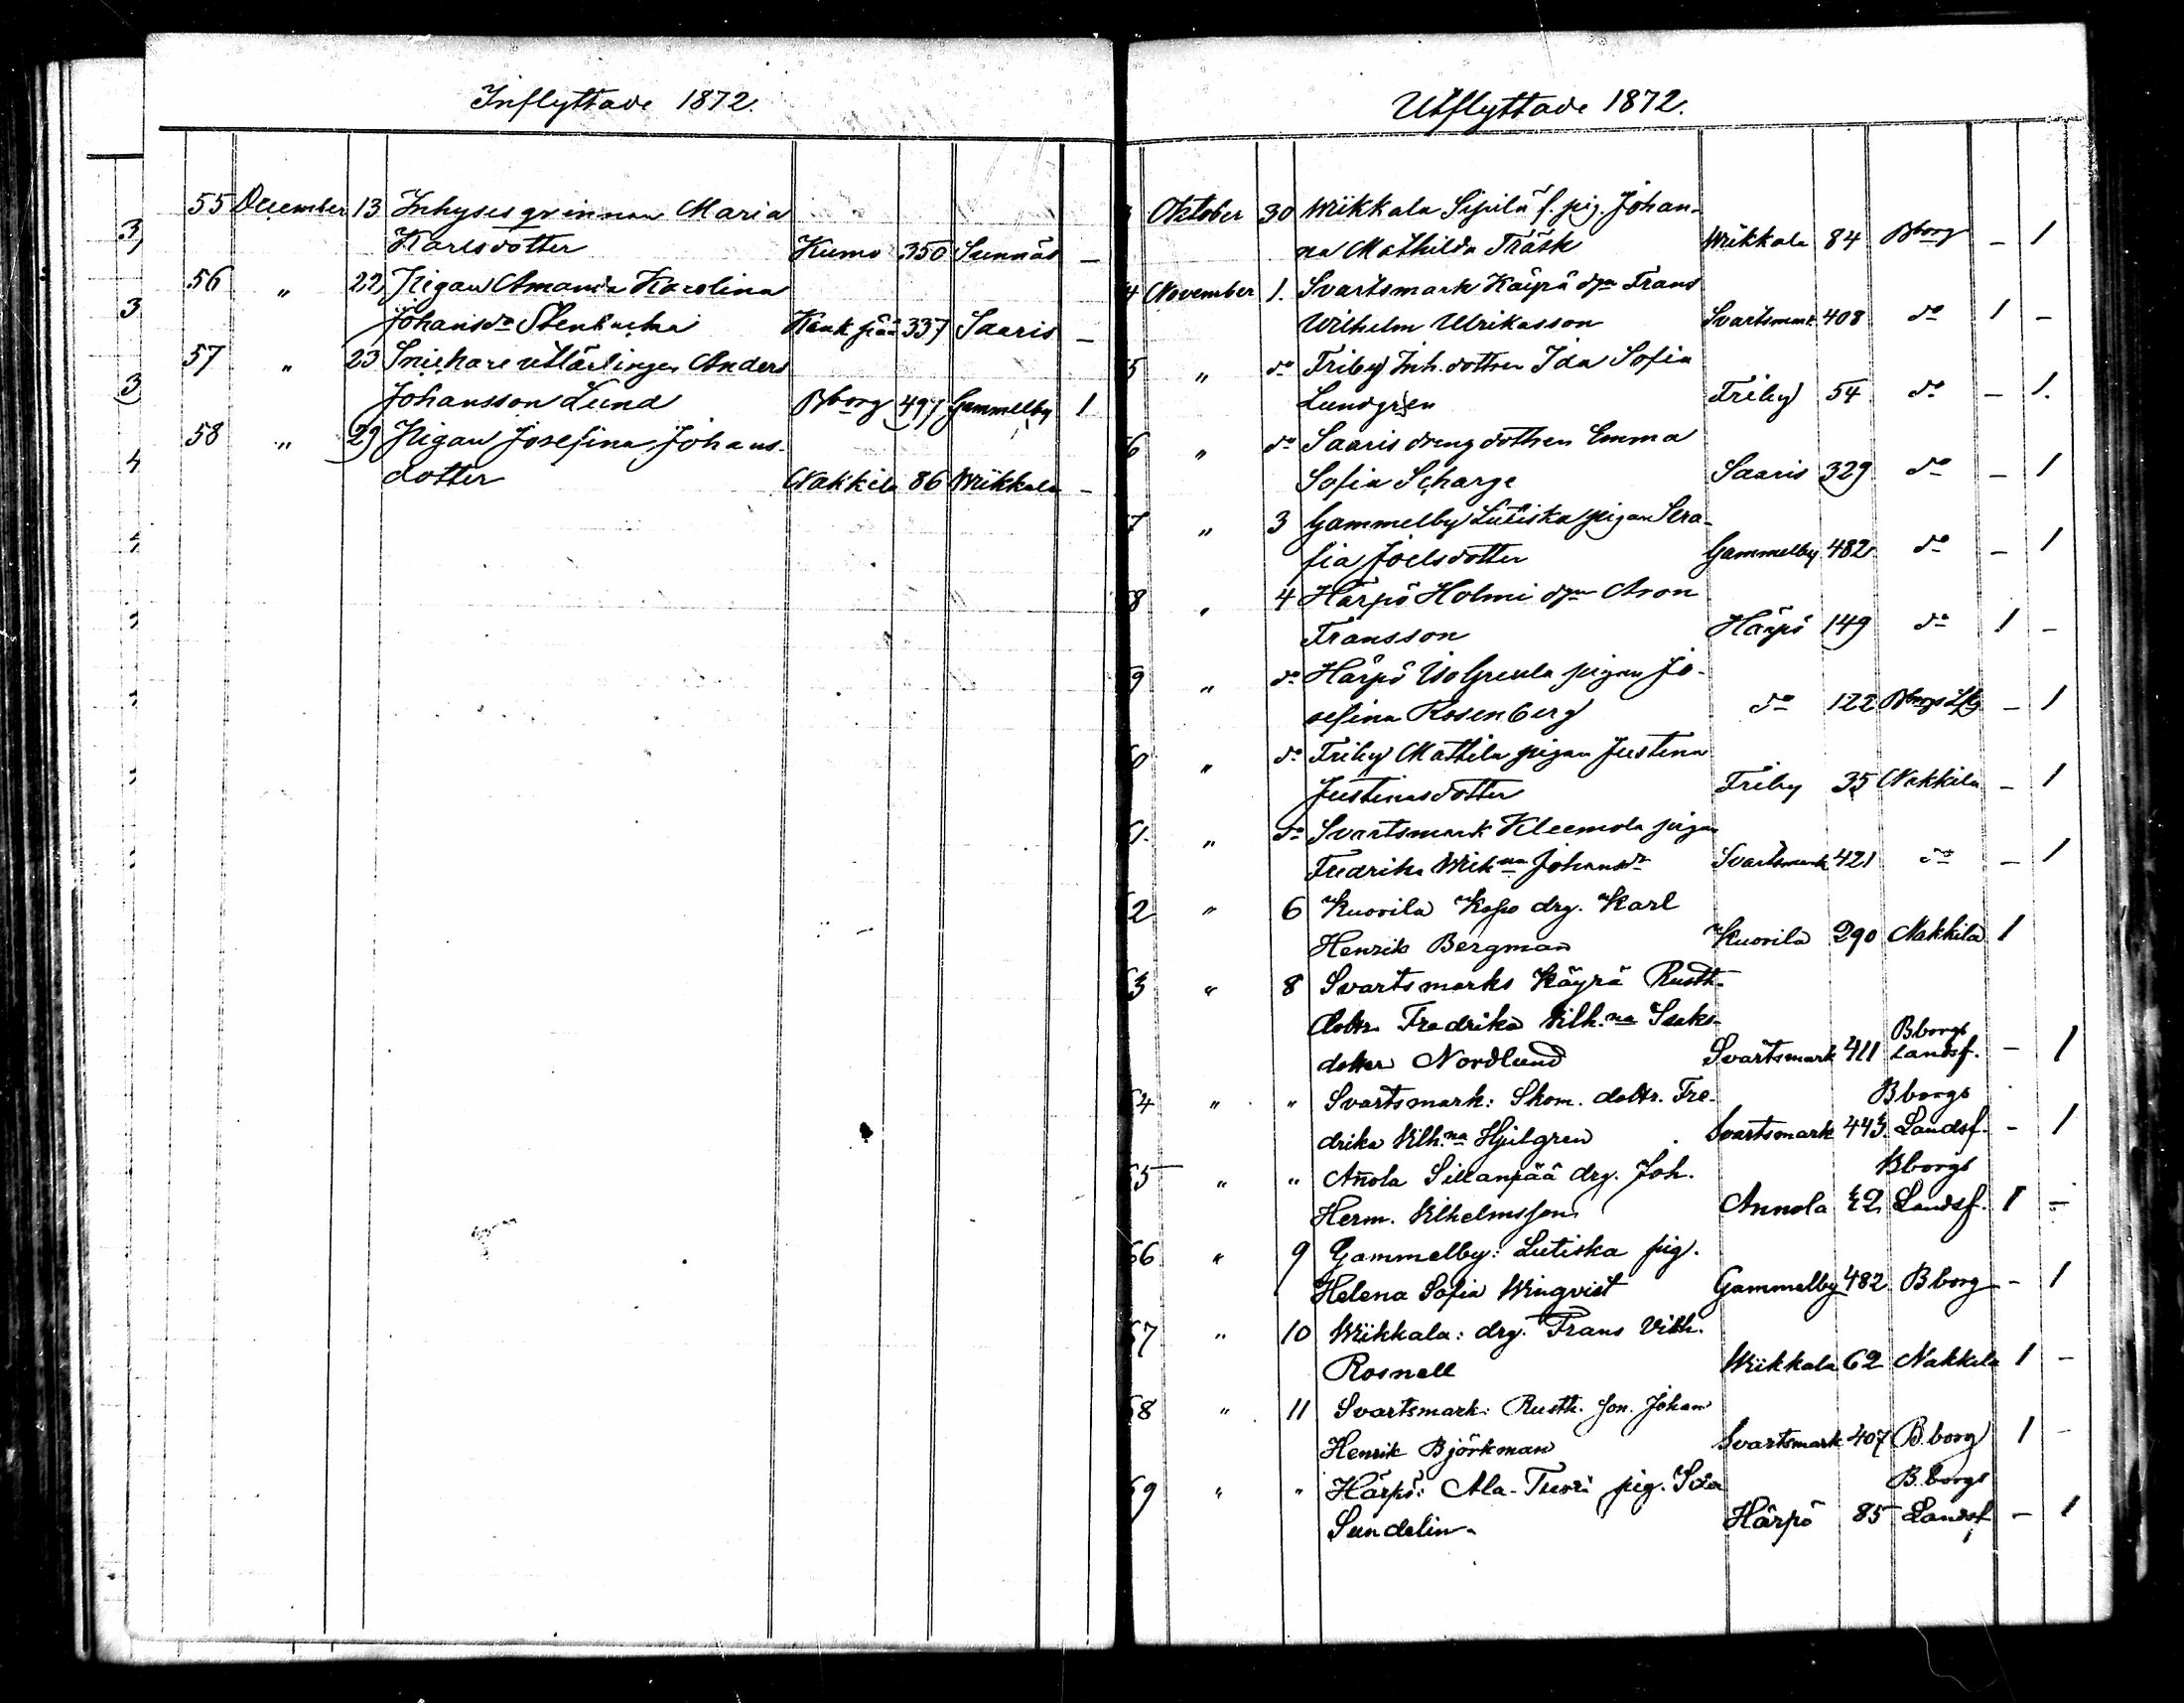 Inflyttade 1872.
55 December 13 Inhyses qvinnan Maria
Karlsdotter Kumo 350 Sunnäs –
56 " 22 Pigan Amanda Karolina
Johansdr Stenbacka Kankpää 337 Saaris –
57 " 23 Snickare utlärlingen Anders
Johansson Lund Bborg 497 Gammelby 1
58 " 29 Pigan Josefina Johans-
dotter Nakkila 86 Wiikkala –
Utflyttade 1872.
3 Oktober 30 Wiikkala Sipilä f. pig. Johan-
na Mathilda Träsk Wiikkala 84 Bborg – 1
4 November 1. Svartsmark Käyrä dgn Frans
Wilhelm Ulrikasson Svartsmark 408 do 1 –
5 " do Friby Inh. dottren Ida Sofia
Lundgren Friby 54 do – 1.
6 " do Saaris dreng dottren Emma
Sofia Scharge Saaris 329 do – 1
7 " 3 Gammelby Lutiska pigan Sera-
fia Joelsdotter Gammelby 482 do – 1
8 " 4 Härpö Holmi dgn Aron
Fransson Härpö 149 do 1 –
9 " do Härpö Iso pigan Jo-
sefina Rosenberg do 122 Bborgs Lfg – 1
0 " do Friby Mattila pigan Justina
Justinasdotter Friby 35 Nakkila – 1
61. " do Svartsmark Kleemola pigan
Fredrika Wilhna Johansdr Svartsmark 421 do – 1
62 " 6 Kuovila Kopo drg. Karl
Henrik Bergman Kuovila 290 Nakkila 1
63 " 8 Svartsmarks Käyrä Rusth.
dottr. Fredrika Vilh.na Isaks-
dotter Nordlund Svartsmark 411 Bborgs Landsf. – 1
64 " " Svartsmark: Skom. dottr. Fre-
drika Vilh.na Hjelgren Svartsmark 443 Bborgs Landsf. – 1
65 " " Añola Sillanpää drg. Joh.
Herm. Vilhelmsson Annola 42 Bborgs Landsf. 1 –
66 " 9 Gammelby: Lutiska pig.
Helena Sofia Winqvist Gammelby 482 Bborg – 1
67 " 10 Wiikkala: drg. Frans Vilh.
Rosnell Wiikkala 62 Nakkila 1 –
68 " 11 Svartsmark: Rusth. son. Johan
Henrik Björkman Svartsmark 407 B.borg 1 –
69 " " Härpö: Ala-Tuori pig. Ida
Sundelin. Härpö 85 B.borgs Landsf – 1